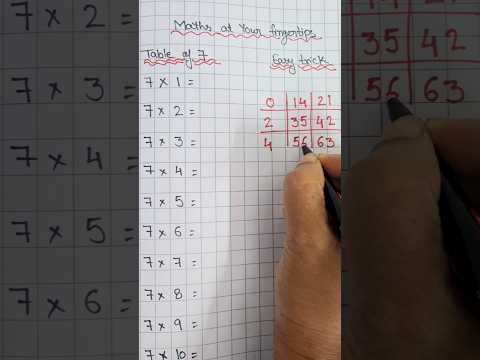 Maths at Your fingertips
Table of 7
Easy trick
7 × 1 =
7 × 2 =
7 × 3 =
7 × 4 =
7 × 5 =
7 × 6 =
7 × 7 =
7 × 8 =
7 × 9 =
7 × 10 =
0 14 21
2 35 42
4 56 63
7 × 2 =
7 × 3 =
7 × 4 =
7 × 5 =
7 × 6 =
35 42
56 63